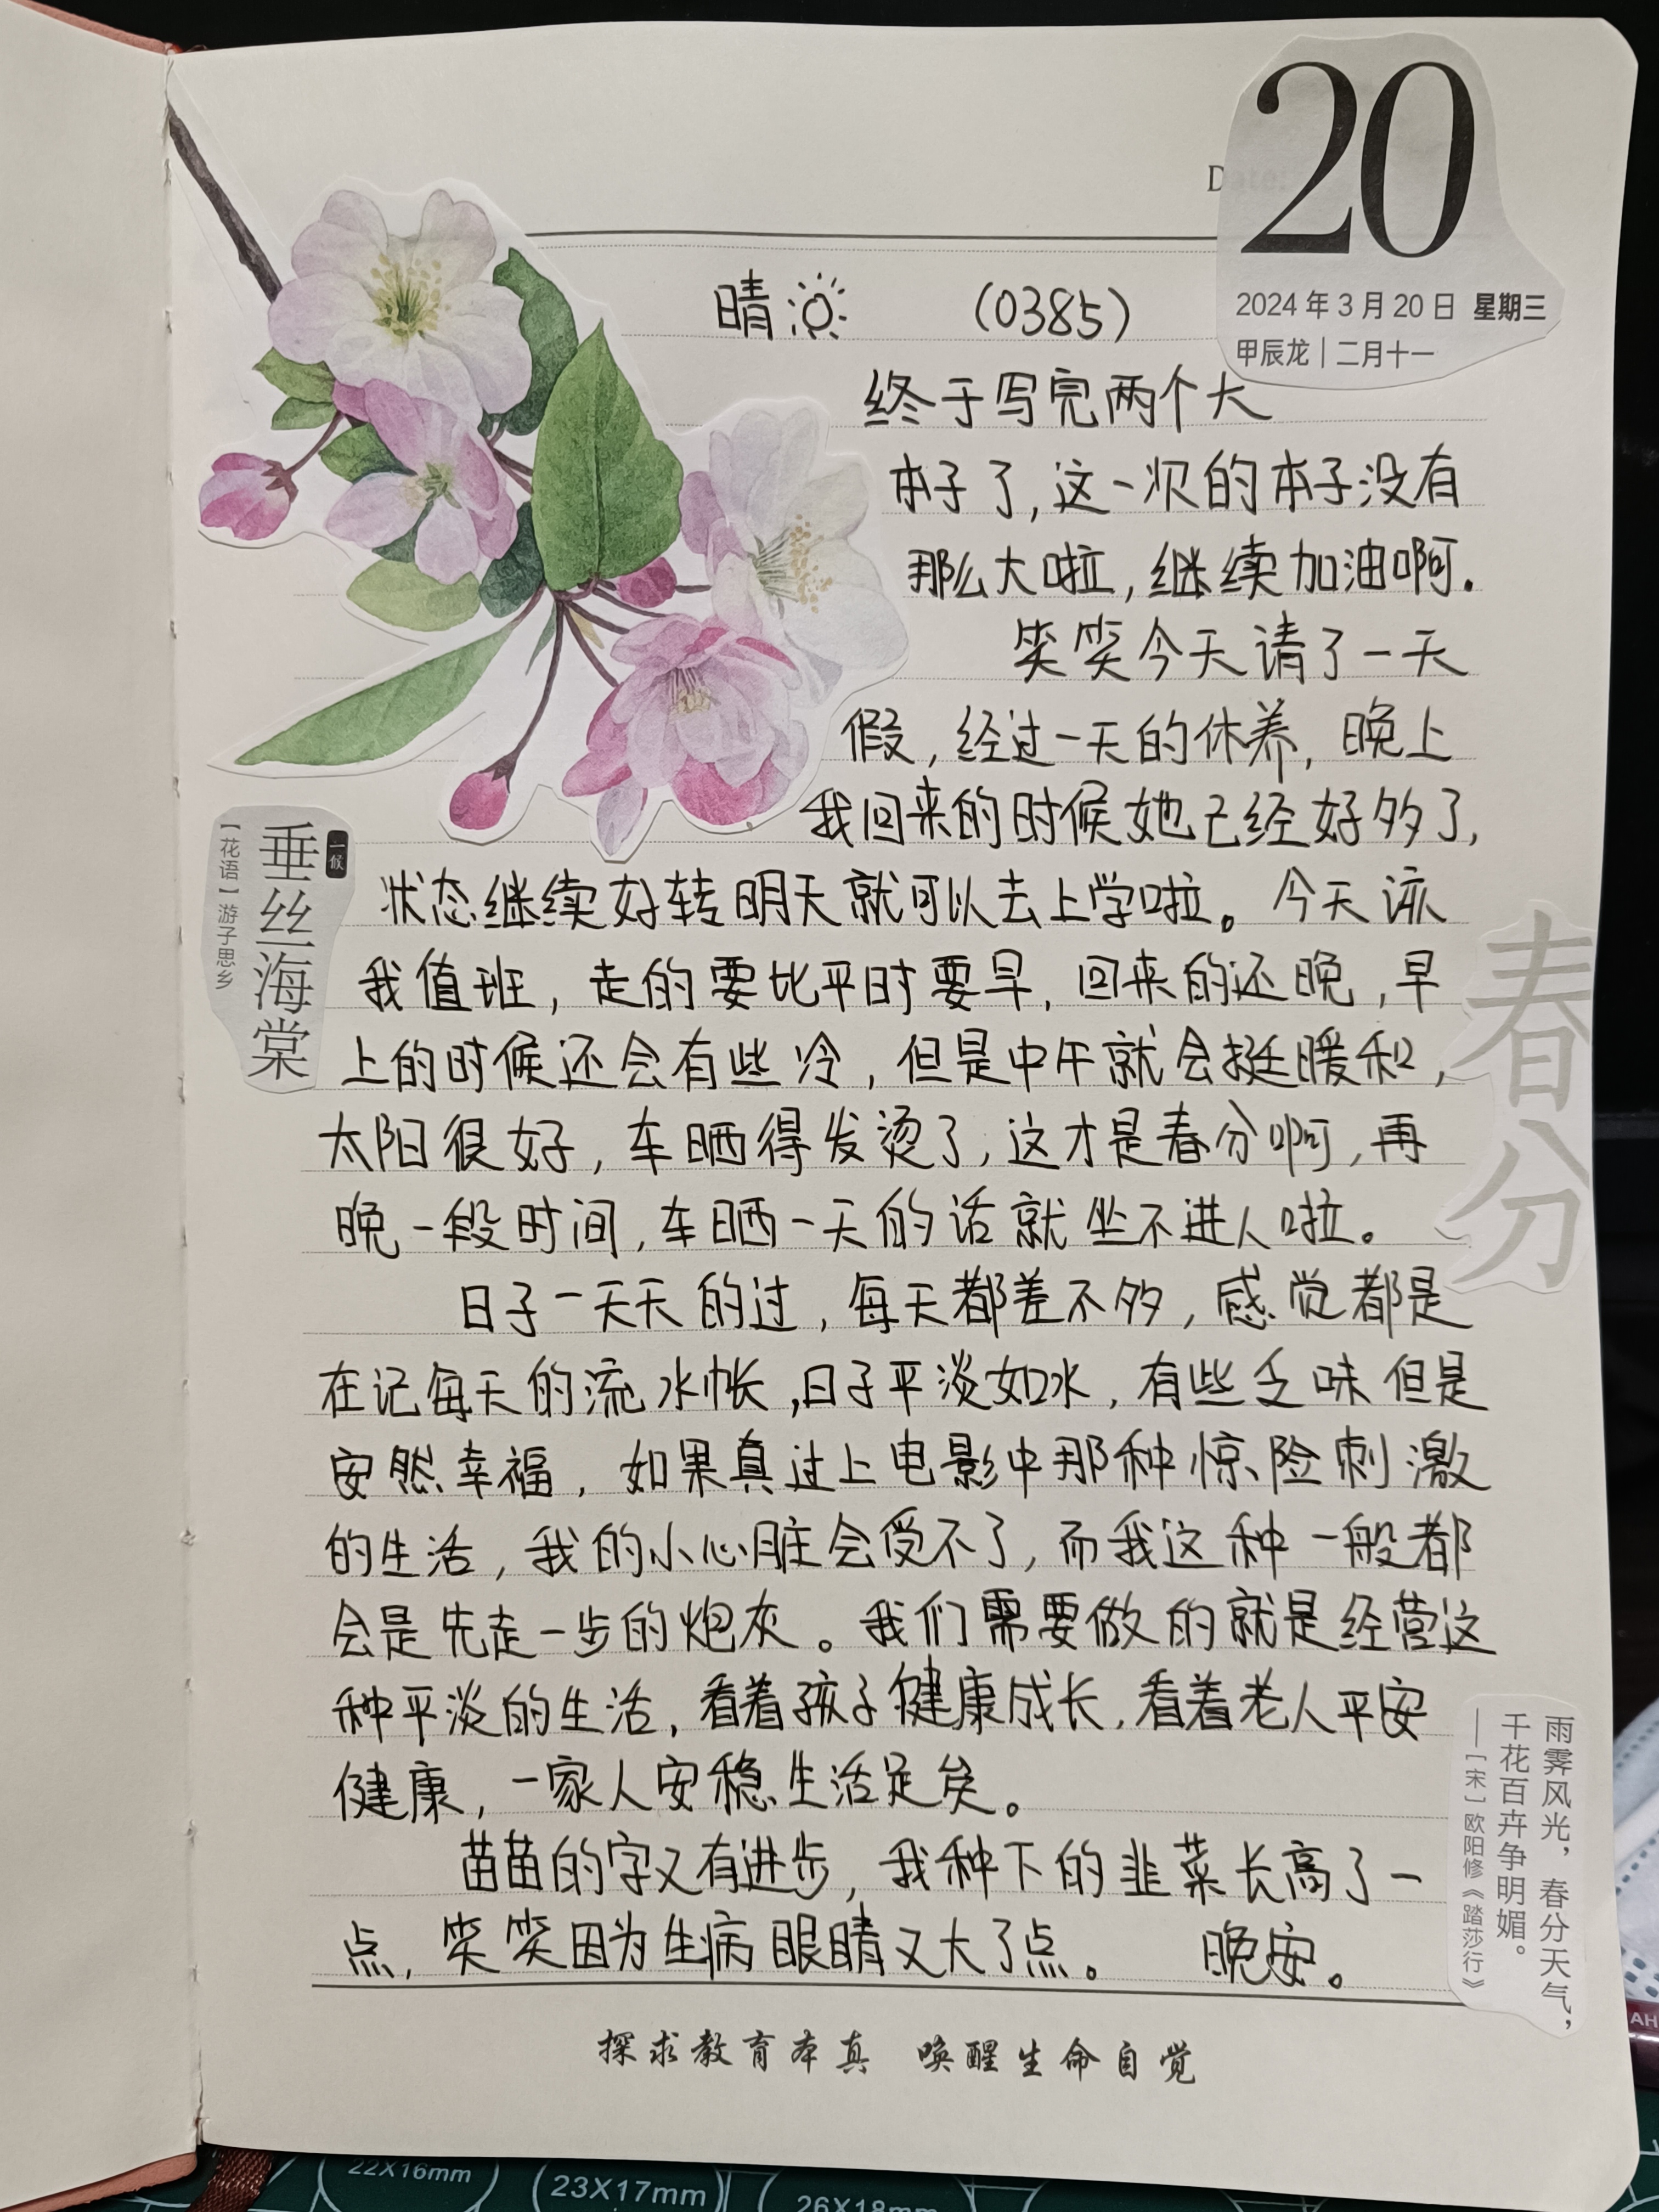 20
Date:
2024年3月20日 星期三
甲辰龙｜二月十一
晴 (0385)
终于写完两个大
本子了,这一次的本子没有
那么大啦,继续加油啊.
笑笑今天请了一天
假,经过一天的休养,晚上
我回来的时候她已经好多了,
状态继续好转明天就可以去上学啦。今天该
我值班,走的要比平时要早,回来的还晚,早
上的时候还会有些冷,但是中午就会挺暖和,
太阳很好,车晒得发烫了,这才是春分啊,再
晚一段时间,车晒一天的话就坐不进人啦。
日子一天天的过,每天都差不多,感觉都是
在记每天的流水帐,日子平淡如水,有些乏味但是
安然幸福,如果真过上电影中那种惊险刺激
的生活,我的小心脏会受不了,而我这种一般都
会是先走一步的炮灰。我们需要做的就是经营这
种平淡的生活,看着孩子健康成长,看着老人平安
健康,一家人安稳生活足矣。
苗苗的字又有进步,我种下的韭菜长高了一
点,笑笑因为生病眼睛又大了点。 晚安。
一候
垂丝海棠
【花语】游子思乡
春分
雨霁风光，春分天气，
千花百卉争明媚。
——［宋］欧阳修《踏莎行》
探求教育本真 唤醒生命自觉
22X16mm
23X17mm
26X18mm
AH